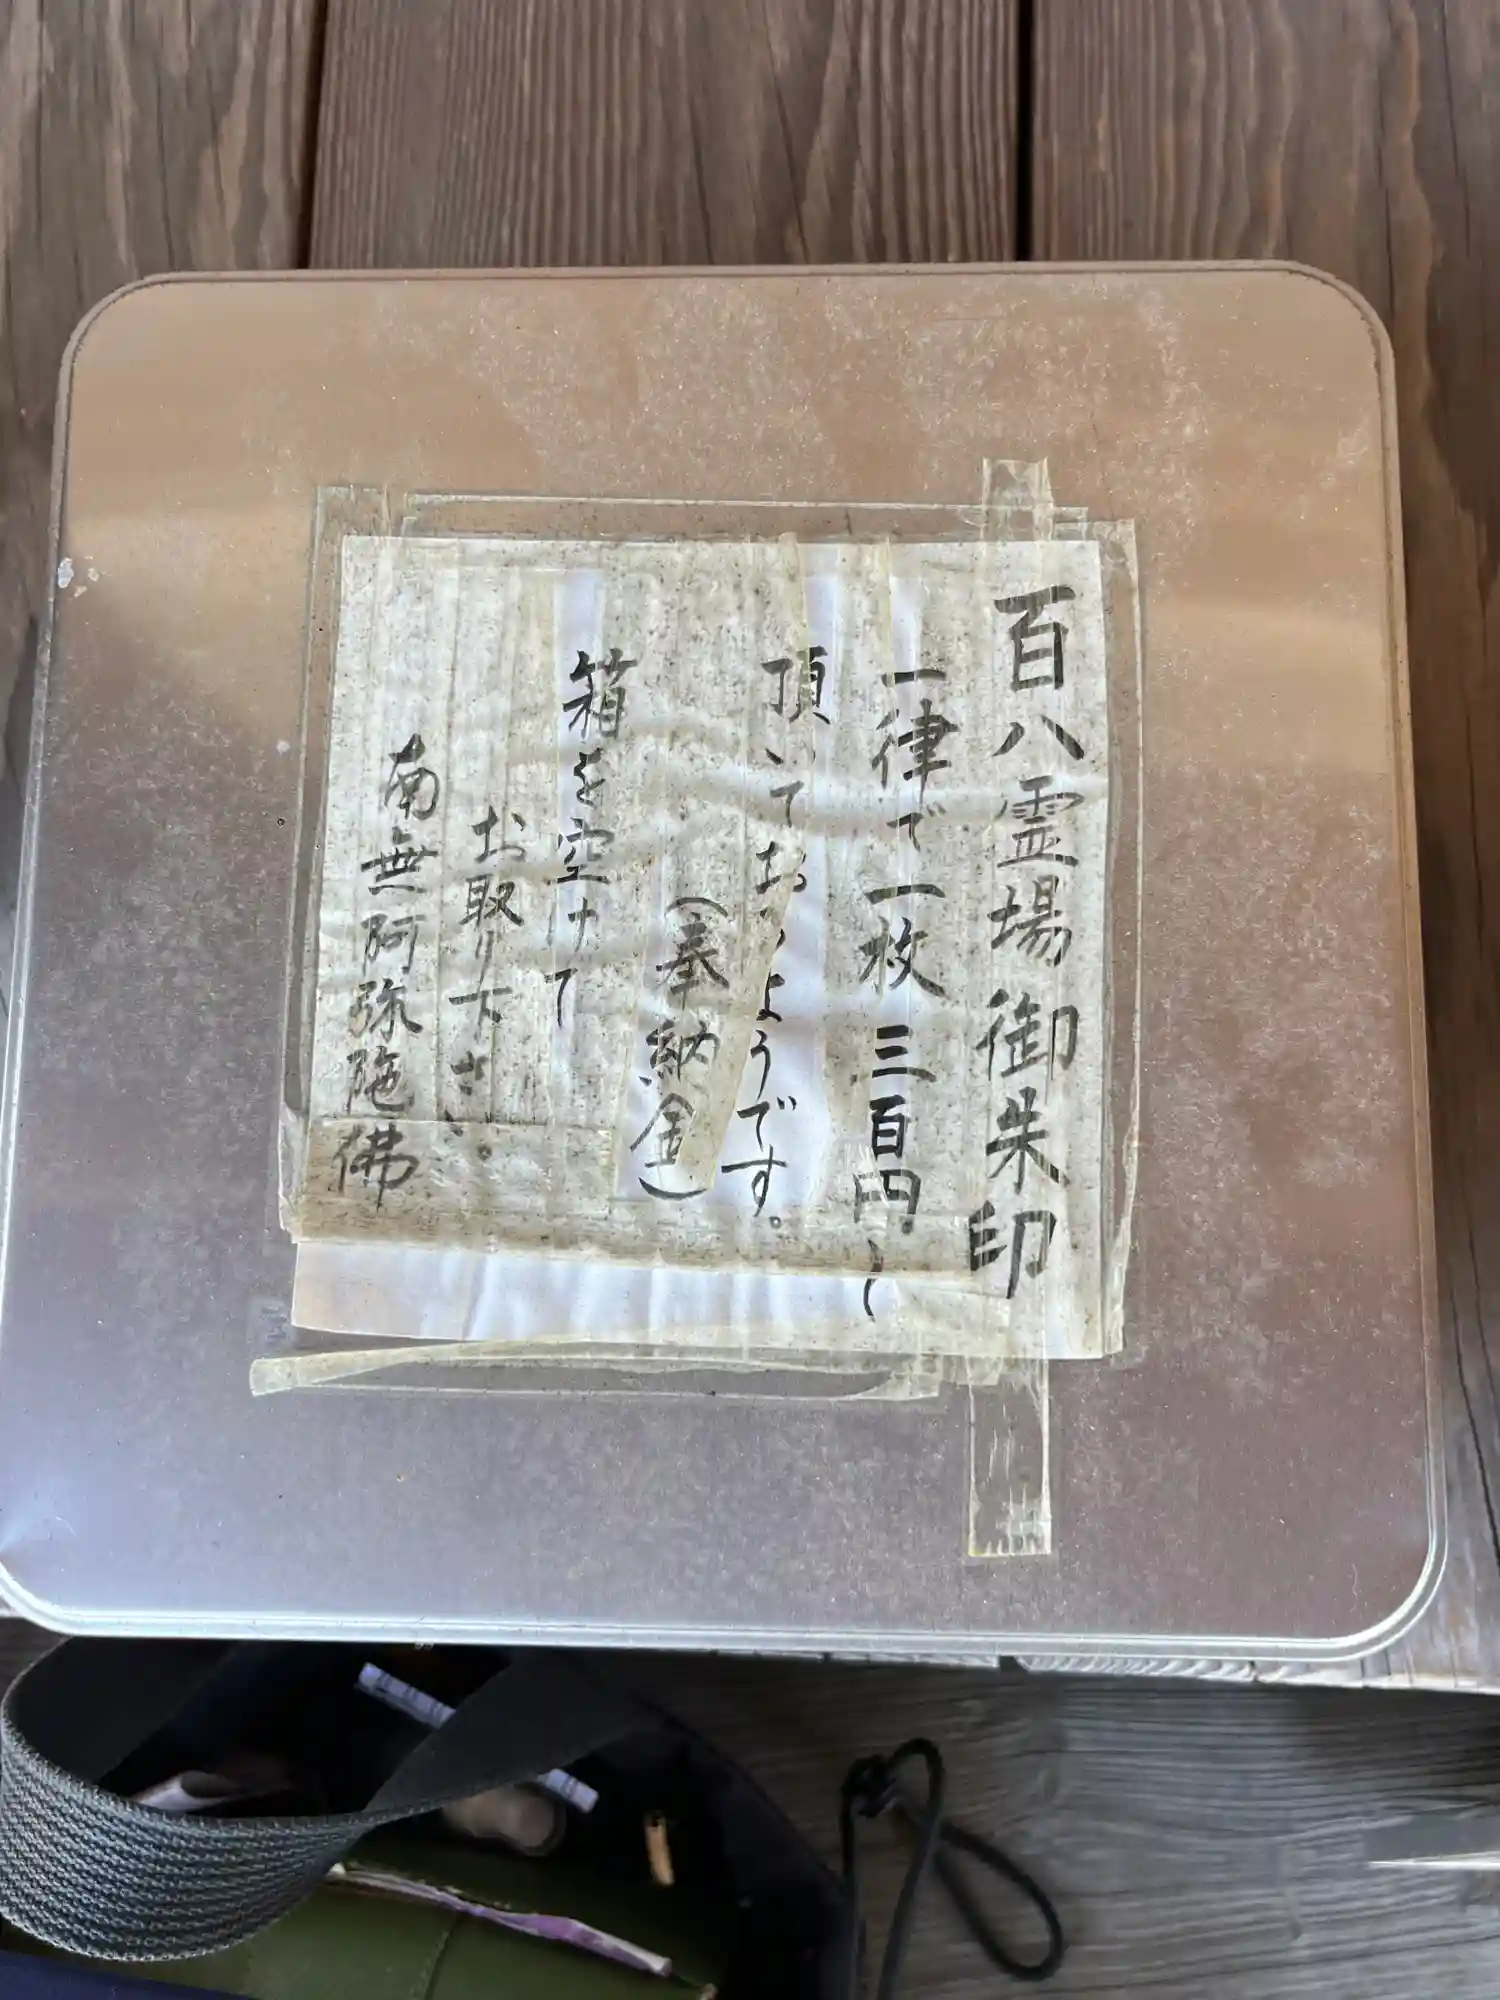 百八霊場 御朱印
一律で一枚 三百円.し
頂いておるようです。
(奉納金)
箱を空けて
お取り下さい。
南無阿弥陀佛